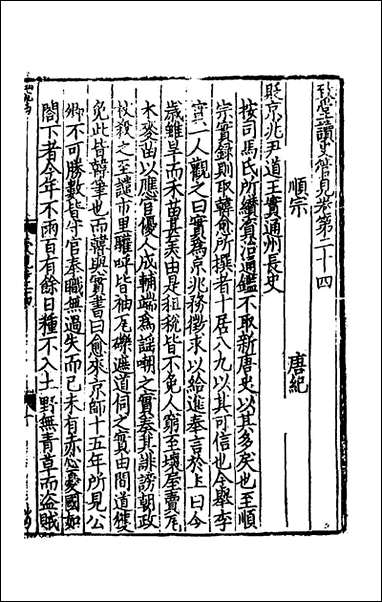 致堂讀史管見卷第二十四
順宗　　唐紀
貶京兆尹道王實通州長史
按司馬氏所纘資治通鑑不取新唐史以其多矣也至順
宗實録則取韓愈所撰者十居八九以其可信也今舉李
實一人觀之曰實爲京兆務徵求以給進奉言於上曰今
歲雖旱而禾苗甚美由是租税皆不免人窮至壞屋賣瓦
木麥苗以應官優人成輔端爲謡嘲之實奏非誹謗朝政
杖殺之至譴市里讙呼皆袖瓦礫遮道伺之實由間道獲
免此皆韓筆也而韓與實書曰愈來京師十五年所見公
卿不可勝數皆守官奉職無過失而已未有赤心憂國如
閤下者今年不雨百有餘日種不入土野無青草而盗賊